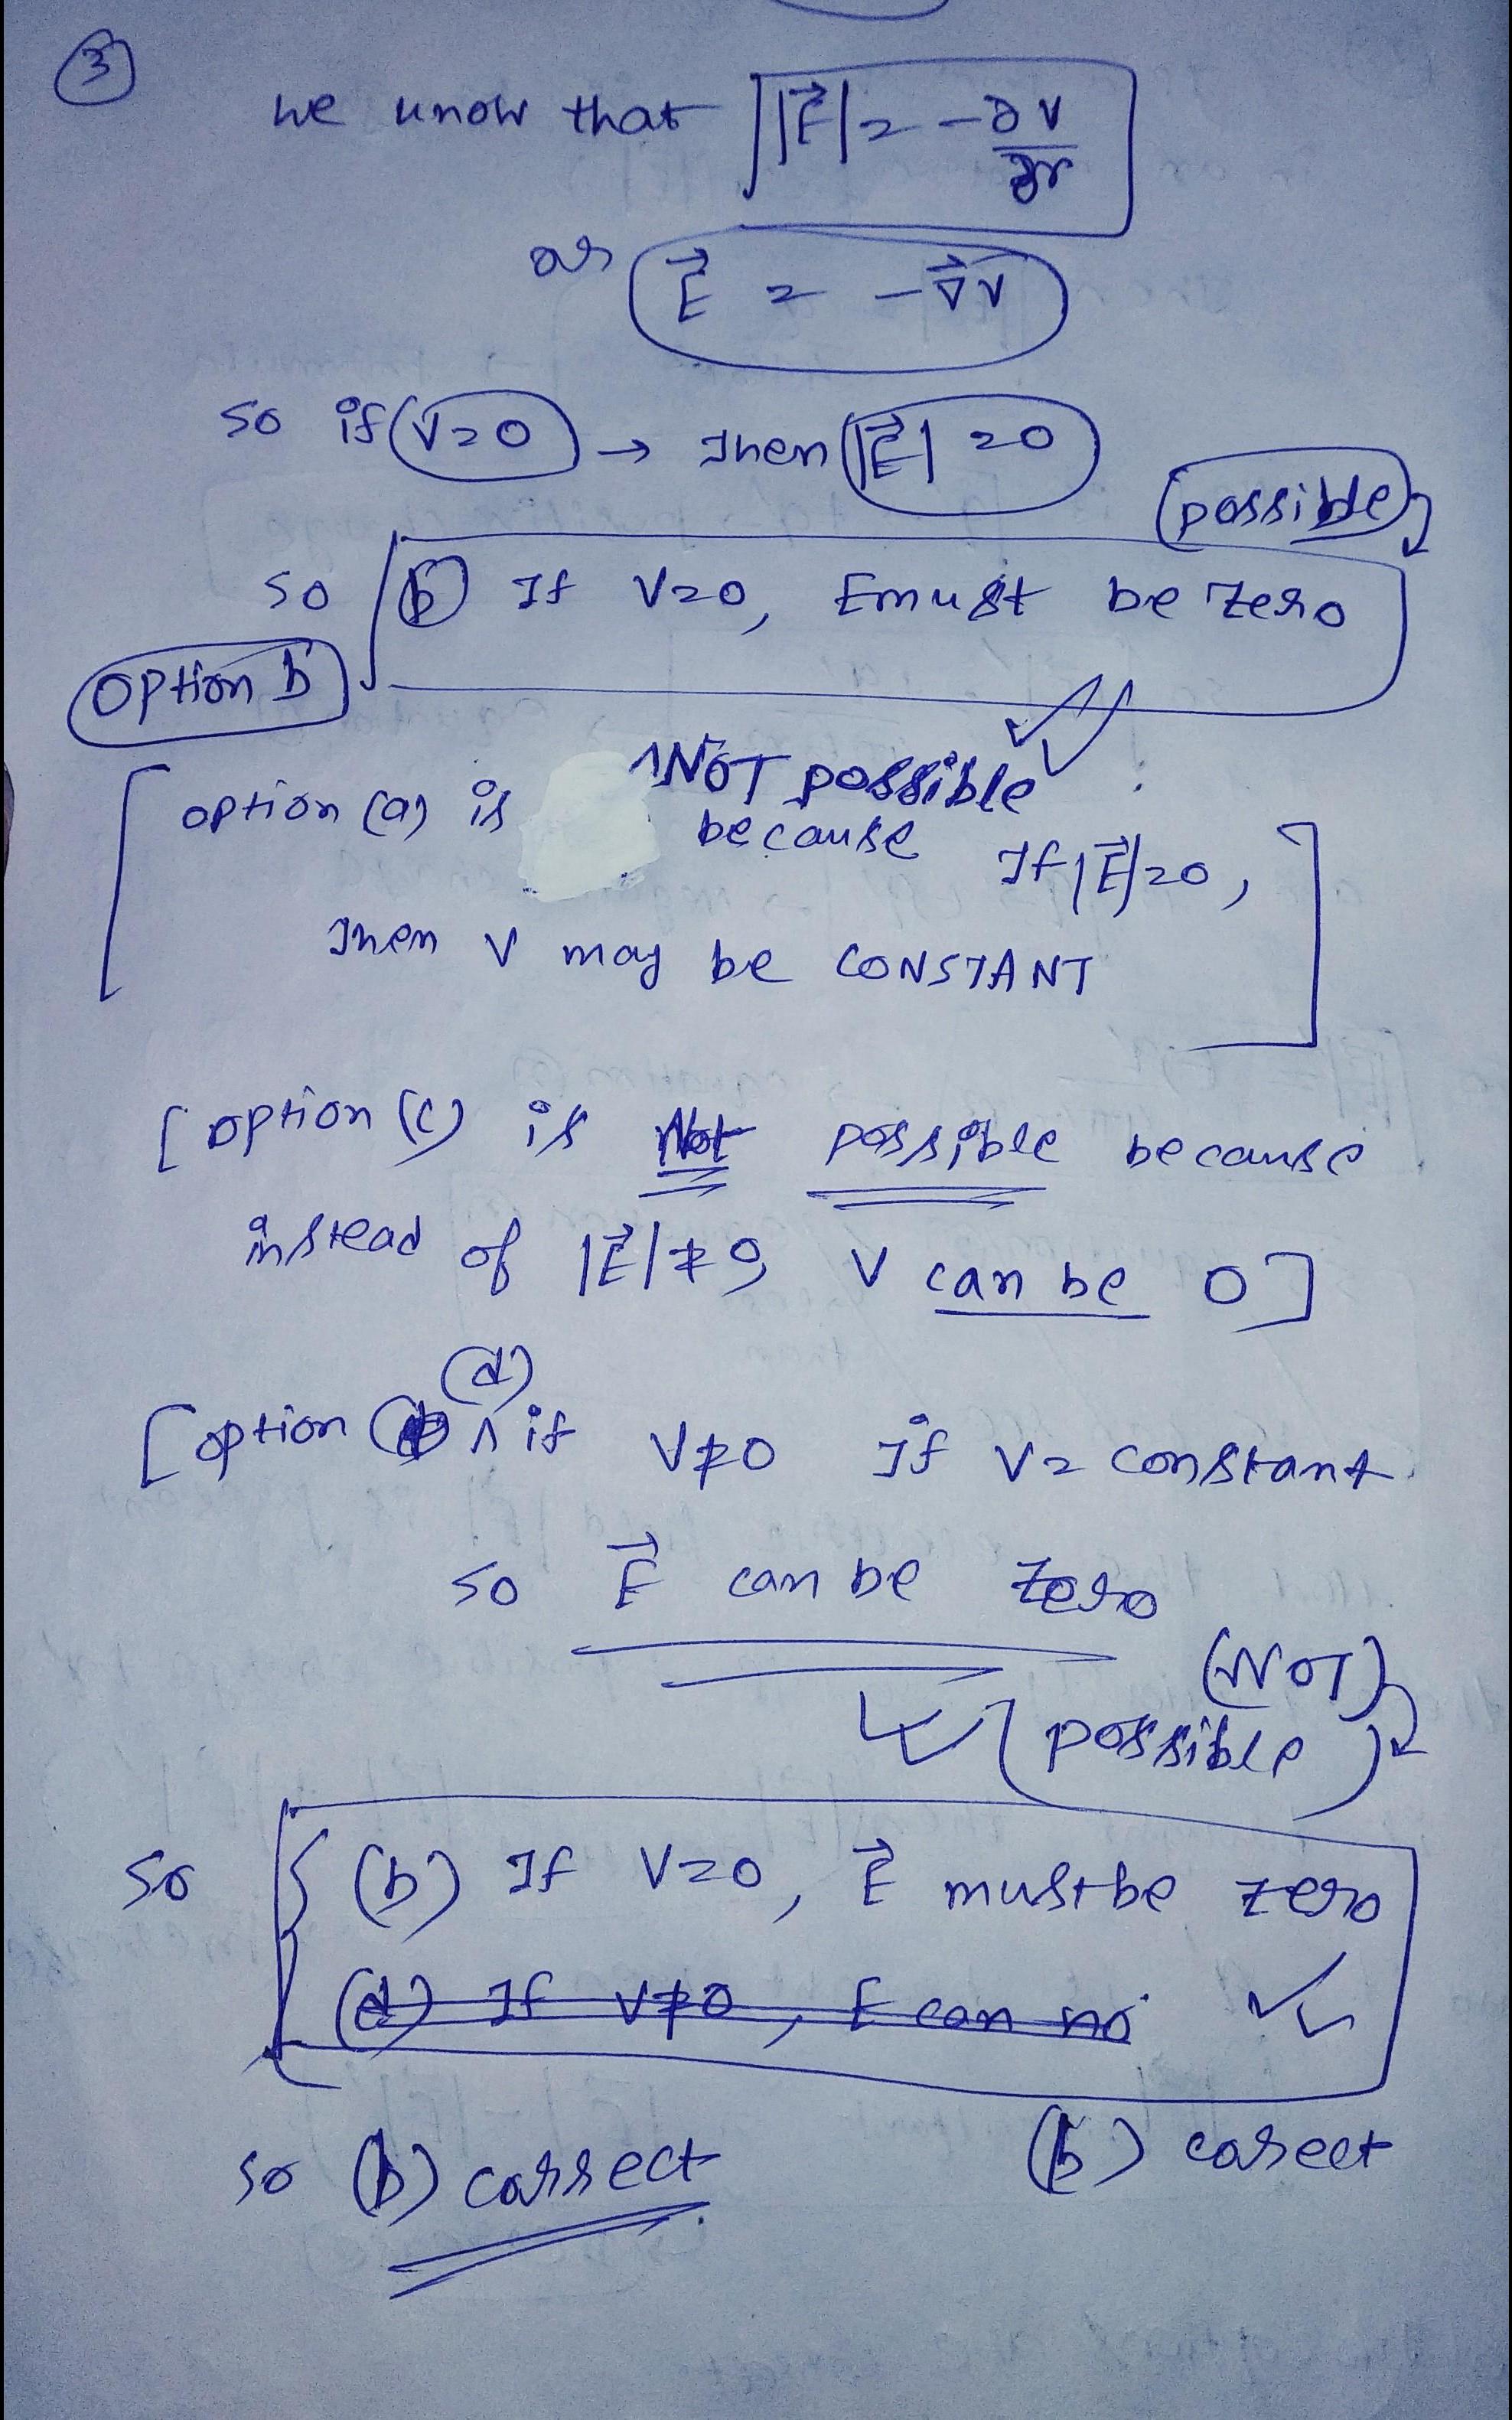 ③
we know that |E⃗| = -∂V/∂r
or E⃗ = -∇⃗V
so if V=0 → Then |E⃗| =0
(possible)
so (b) If V=0, E must be zero
option b
option (a) is NOT possible because If |E⃗|=0,
Then V may be CONSTANT
[option (c) is Not possible because
instead of |E⃗|≠0, V can be 0]
[option (d) if V≠0 If V= constant
so E⃗ can be zero
(NOT)
possible
so (b) If V=0, E⃗ must be zero
(d) If V≠0, E can no
so (b) correct (b) corect